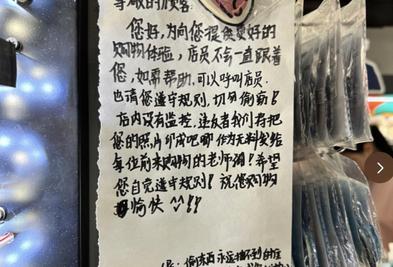 尊敬的顾客:
您好,为向您提供更好的
购物体验,店员不会一直跟着
您,如需帮助,可以呼叫店员.
也请您遵守规则,切勿偷窃!
店内设有监控,违反者我们将把
您的照片印成吧唧作为无料发给
每位前来购物的老师们!希望
您自觉遵守规则!祝您购物
愉快 ^^!!
偷东西永远抽不到自推